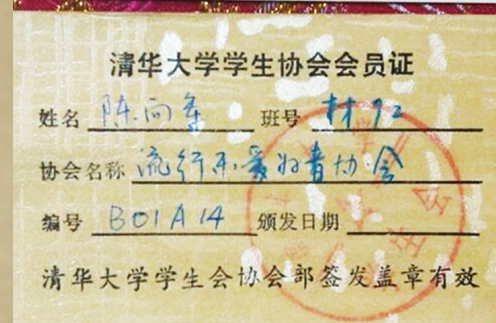 清华大学学生协会会员证
姓名 陈向东 班号 材92
协会名称 流行乐爱好者协会
编号 B01A14 颁发日期
清华大学学生会协会部签发盖章有效